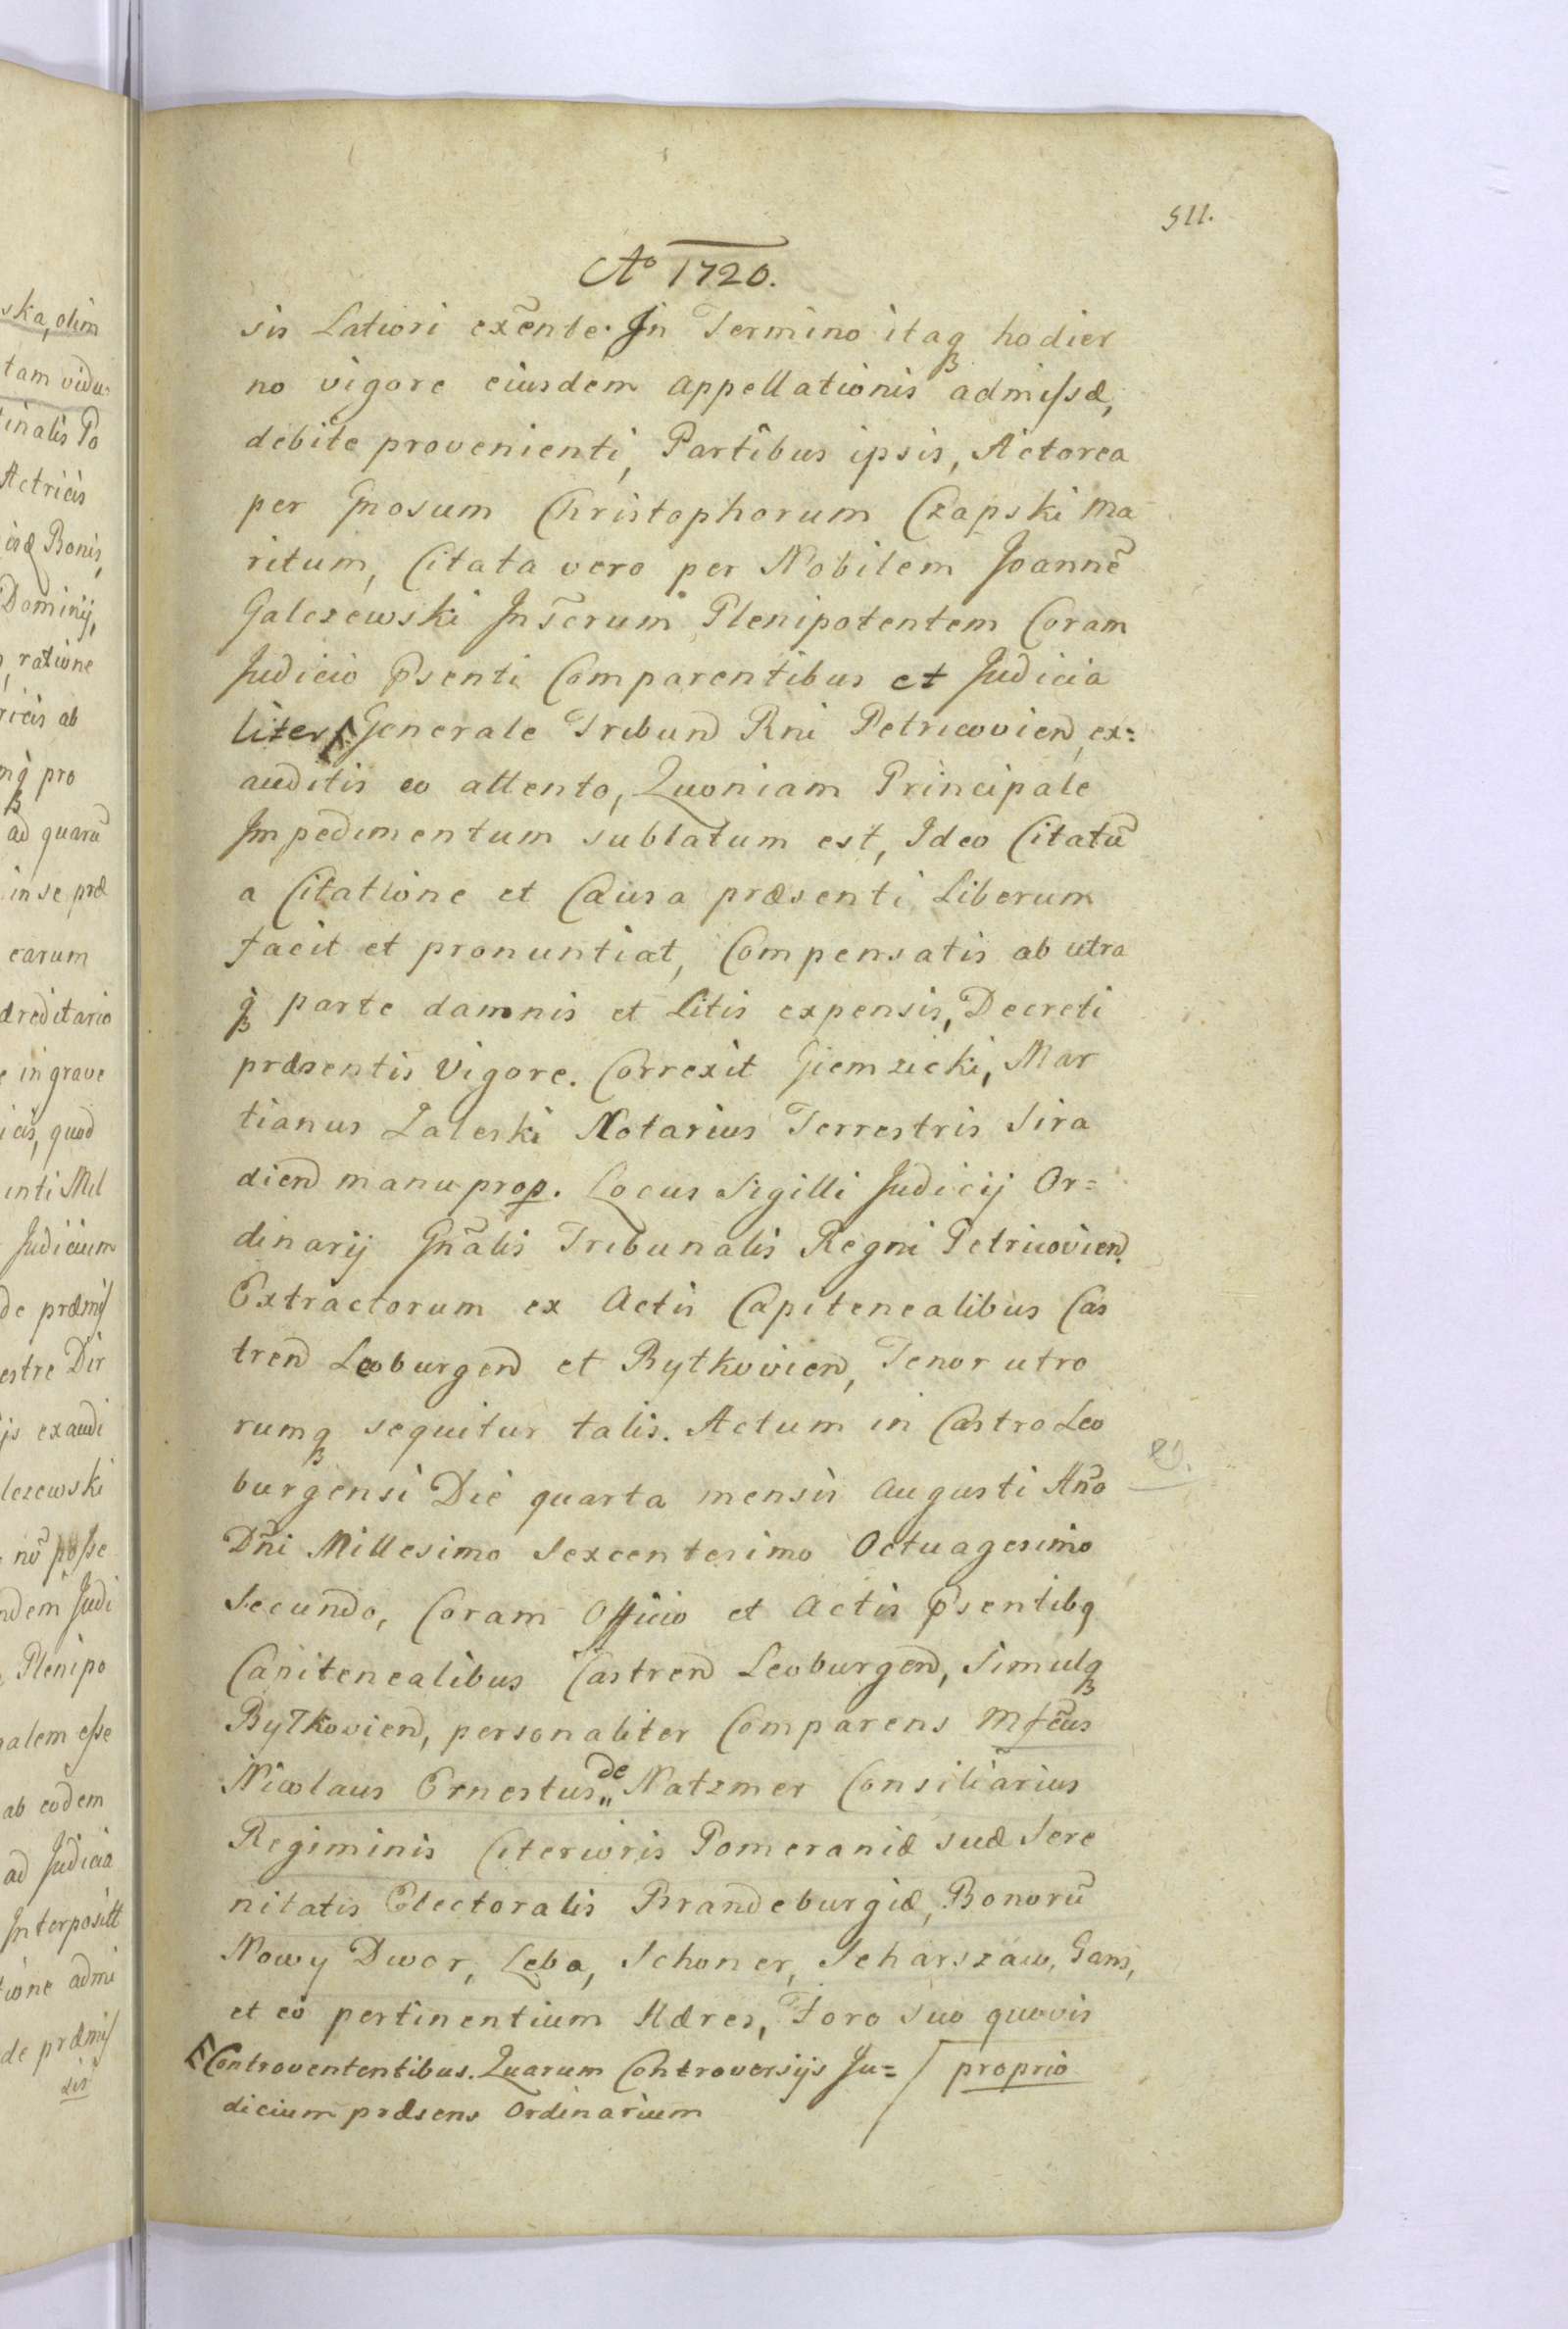 511.
Aº 1720.
sis Latiori exẽnte. In Termino itaq hodier
no vigore eiusdem appellationis admissæ,
debite provenienti, Partibus ipsis, Actorea
per Gnosum Christophorum Czapski ma
ritum, Citata vero per Nobilem Joannẽ
Galczewski Insterum Plenipotentem Coram
Judicio Psenti Comparentibus et Judicia
liter Generale Tribund Rni Petricoviend, ex=
auditis eo attento, Quoniam Principale
Impedimentum sublatum est, Ideo Citatũ
a Citatione et Causa præsenti Liberum
facit et pronuntiat, Compensatis ab utra
q parte damnis et Litis expensis, Decreti
præsentis Vigore. Correxit Giemzicki, Mar
tianus Zaleski Notarius Terrestris Sira
diend manu prop. Locus Sigilli Judicij Or=
dinarij Gñalis Tribunalis Regni Petricoviend.
Extractorum ex Actis Capitenealibus Cas
trend Leoburgend et Bytkoviend, Tenor utro
rumq sequitur talis. Actum in Castro Leo
burgensi Die quarta mensis Augusti Año
Dñi Millesimo Sexcentesimo Octuagesimo
Secundo, Coram Officio et Actis Psentibq
Capitenealibus Castrend Leoburgend, Simulq
Bytkoviend, personaliter Comparens Mfcus
Nicolaus Ernestus de Natzmer Consiliarius
Regiminis Citerioris Pomeraniæ suæ Sere
nitatis Electoralis Brandeburgiæ, Bonorũ
Nowy Dwor, Leba, Schoner, Scharszaw, Gans,
et eo pertinentium Hæres, Foro Suo quovis
Controvententibus. Quarum Controversijs Ju= / proprio
dicium præsens Ordinarium
ska, olim
tam vidu=
inalis Po
Actricis
isq Bonis,
Dominij,
ratione
ricis ab
mq pro
ad quarũ
in se præ
earum
æreditario
e in grave
icis, quod
enti Mil
Judicium
de præmis
estre Dir
js exaudi
lczewski
nõ posse
ndem Judi
Plenipo
alem esse
ab eodem
ad Judicia
Interposilt
ione admi
de præmis
sis